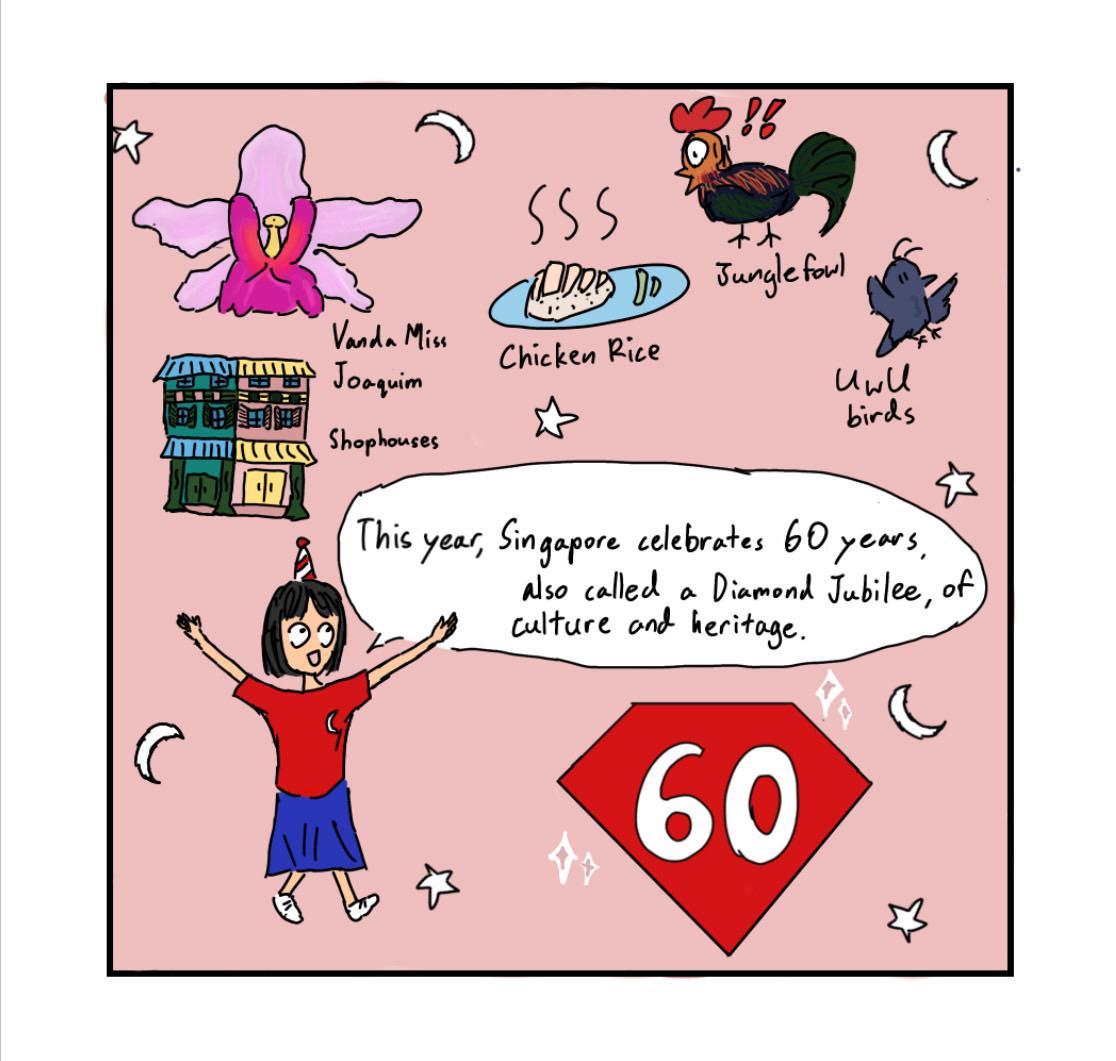 !!
Junglefowl
Vanda Miss
Joaquim
Chicken Rice
UwU
birds
Shophouses
This year, Singapore celebrates 60 years,
also called a Diamond Jubilee, of
culture and heritage.
60